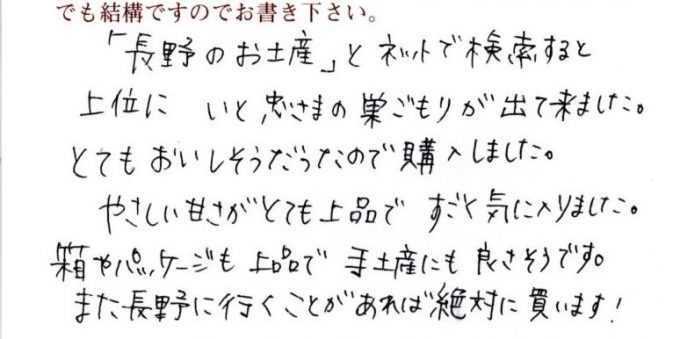 でも結構ですのでお書き下さい。
「長野のお土産」とネットで検索すると
上位に いと忠さまの巣ごもりが出て来ました。
とてもおいしそうだったので購入しました。
やさしい甘さがとても上品で すごく気に入りました。
箱やパッケージも上品で手土産にも良さそうです。
また長野に行くことがあれば絶対に買います!